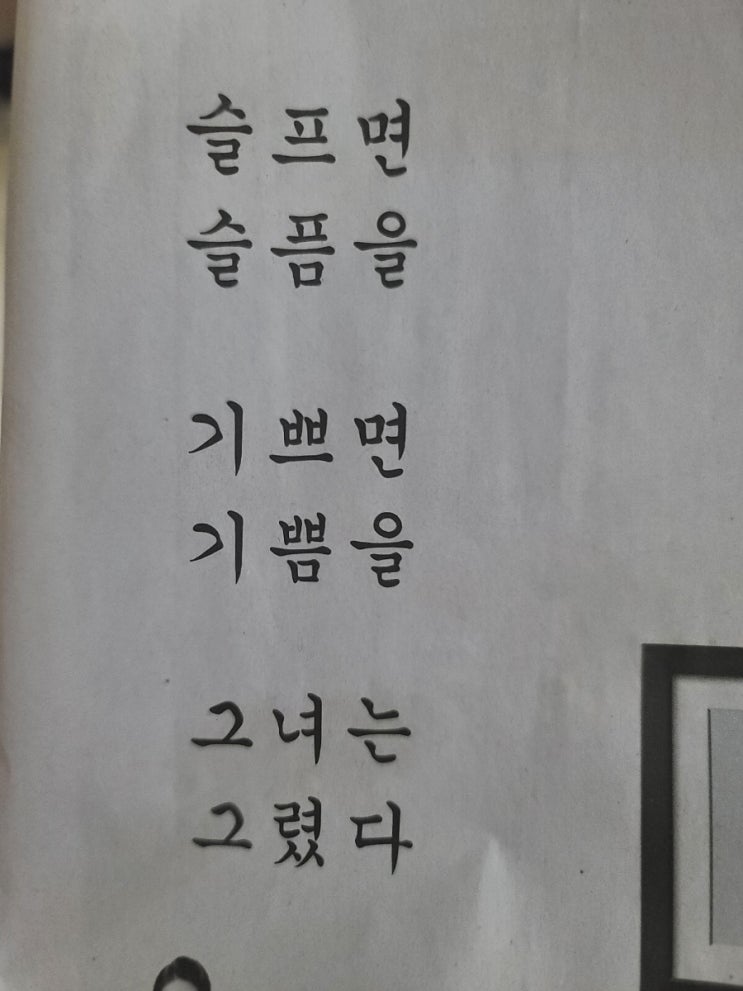 슬프면
슬픔을
기쁘면
기쁨을
그녀는
그렸다